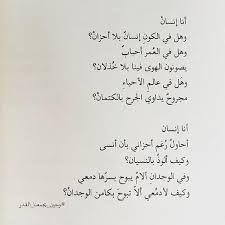 أنا إنسانٌ
وهل في الكونِ إنسانٌ بلا أحزانْ؟
وهل في العُمر أحبابٌ
يصونون الهوى فينا بلا خُذلان؟
وهَل في عالمِ الأحياءِ
مجروحٌ يداوي الجرح بالكتمانْ؟
أنا إنسان
أحاولُ رُغم أحزاني بأن أنسى
وكيف ألوذُ بالنسيان؟
وفي الوجدانِ آلامٌ يبوح بسرّها دمعي
وكيف لأدمُعي ألاّ تبوحَ بكامنِ الوجدانْ؟
#وحين_يجمعنا_القدر